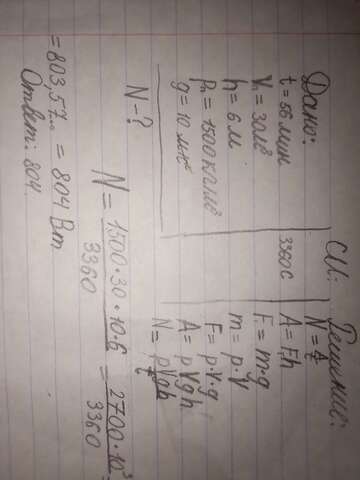 Дано:
t = 56 мин
V = 30 м³
h = 6 м
ρₙ = 1500 кг/м³
g = 10 м/с²
N - ?
СИ:
3360 с
Решение:
N = A/t
A = F·h
F = m·g
m = ρ·V
F = ρ·V·g
A = ρVgh
N = ρVgh/t
N = 1500·30·10·6/3360 = 2700·10³/3360
= 803,57... = 804 Вт
Ответ: 804.